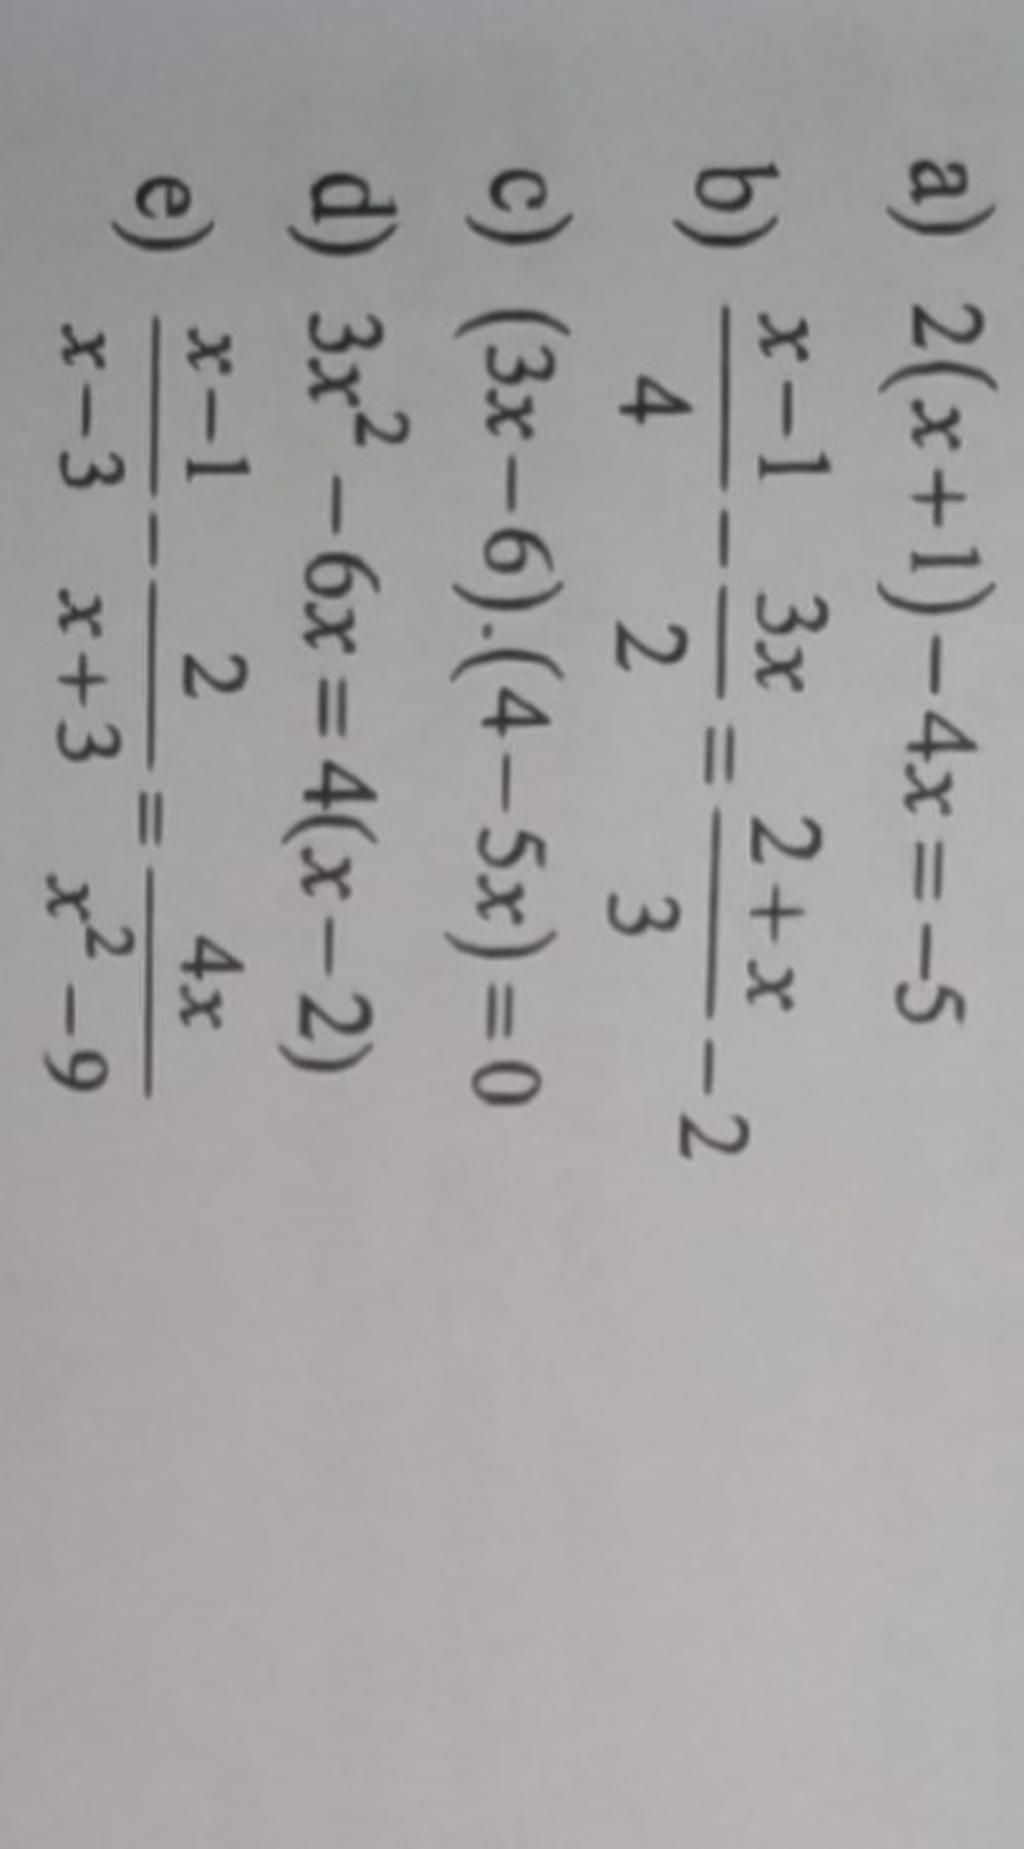 a) 2(x+1)−4x=−5
b) \frac{x−1}{4} − \frac{3x}{2} = \frac{2+x}{3} − 2
c) (3x−6).(4−5x)=0
d) 3x² −6x=4(x−2)
e) \frac{x−1}{x−3} − \frac{2}{x+3} = \frac{4x}{x²−9}